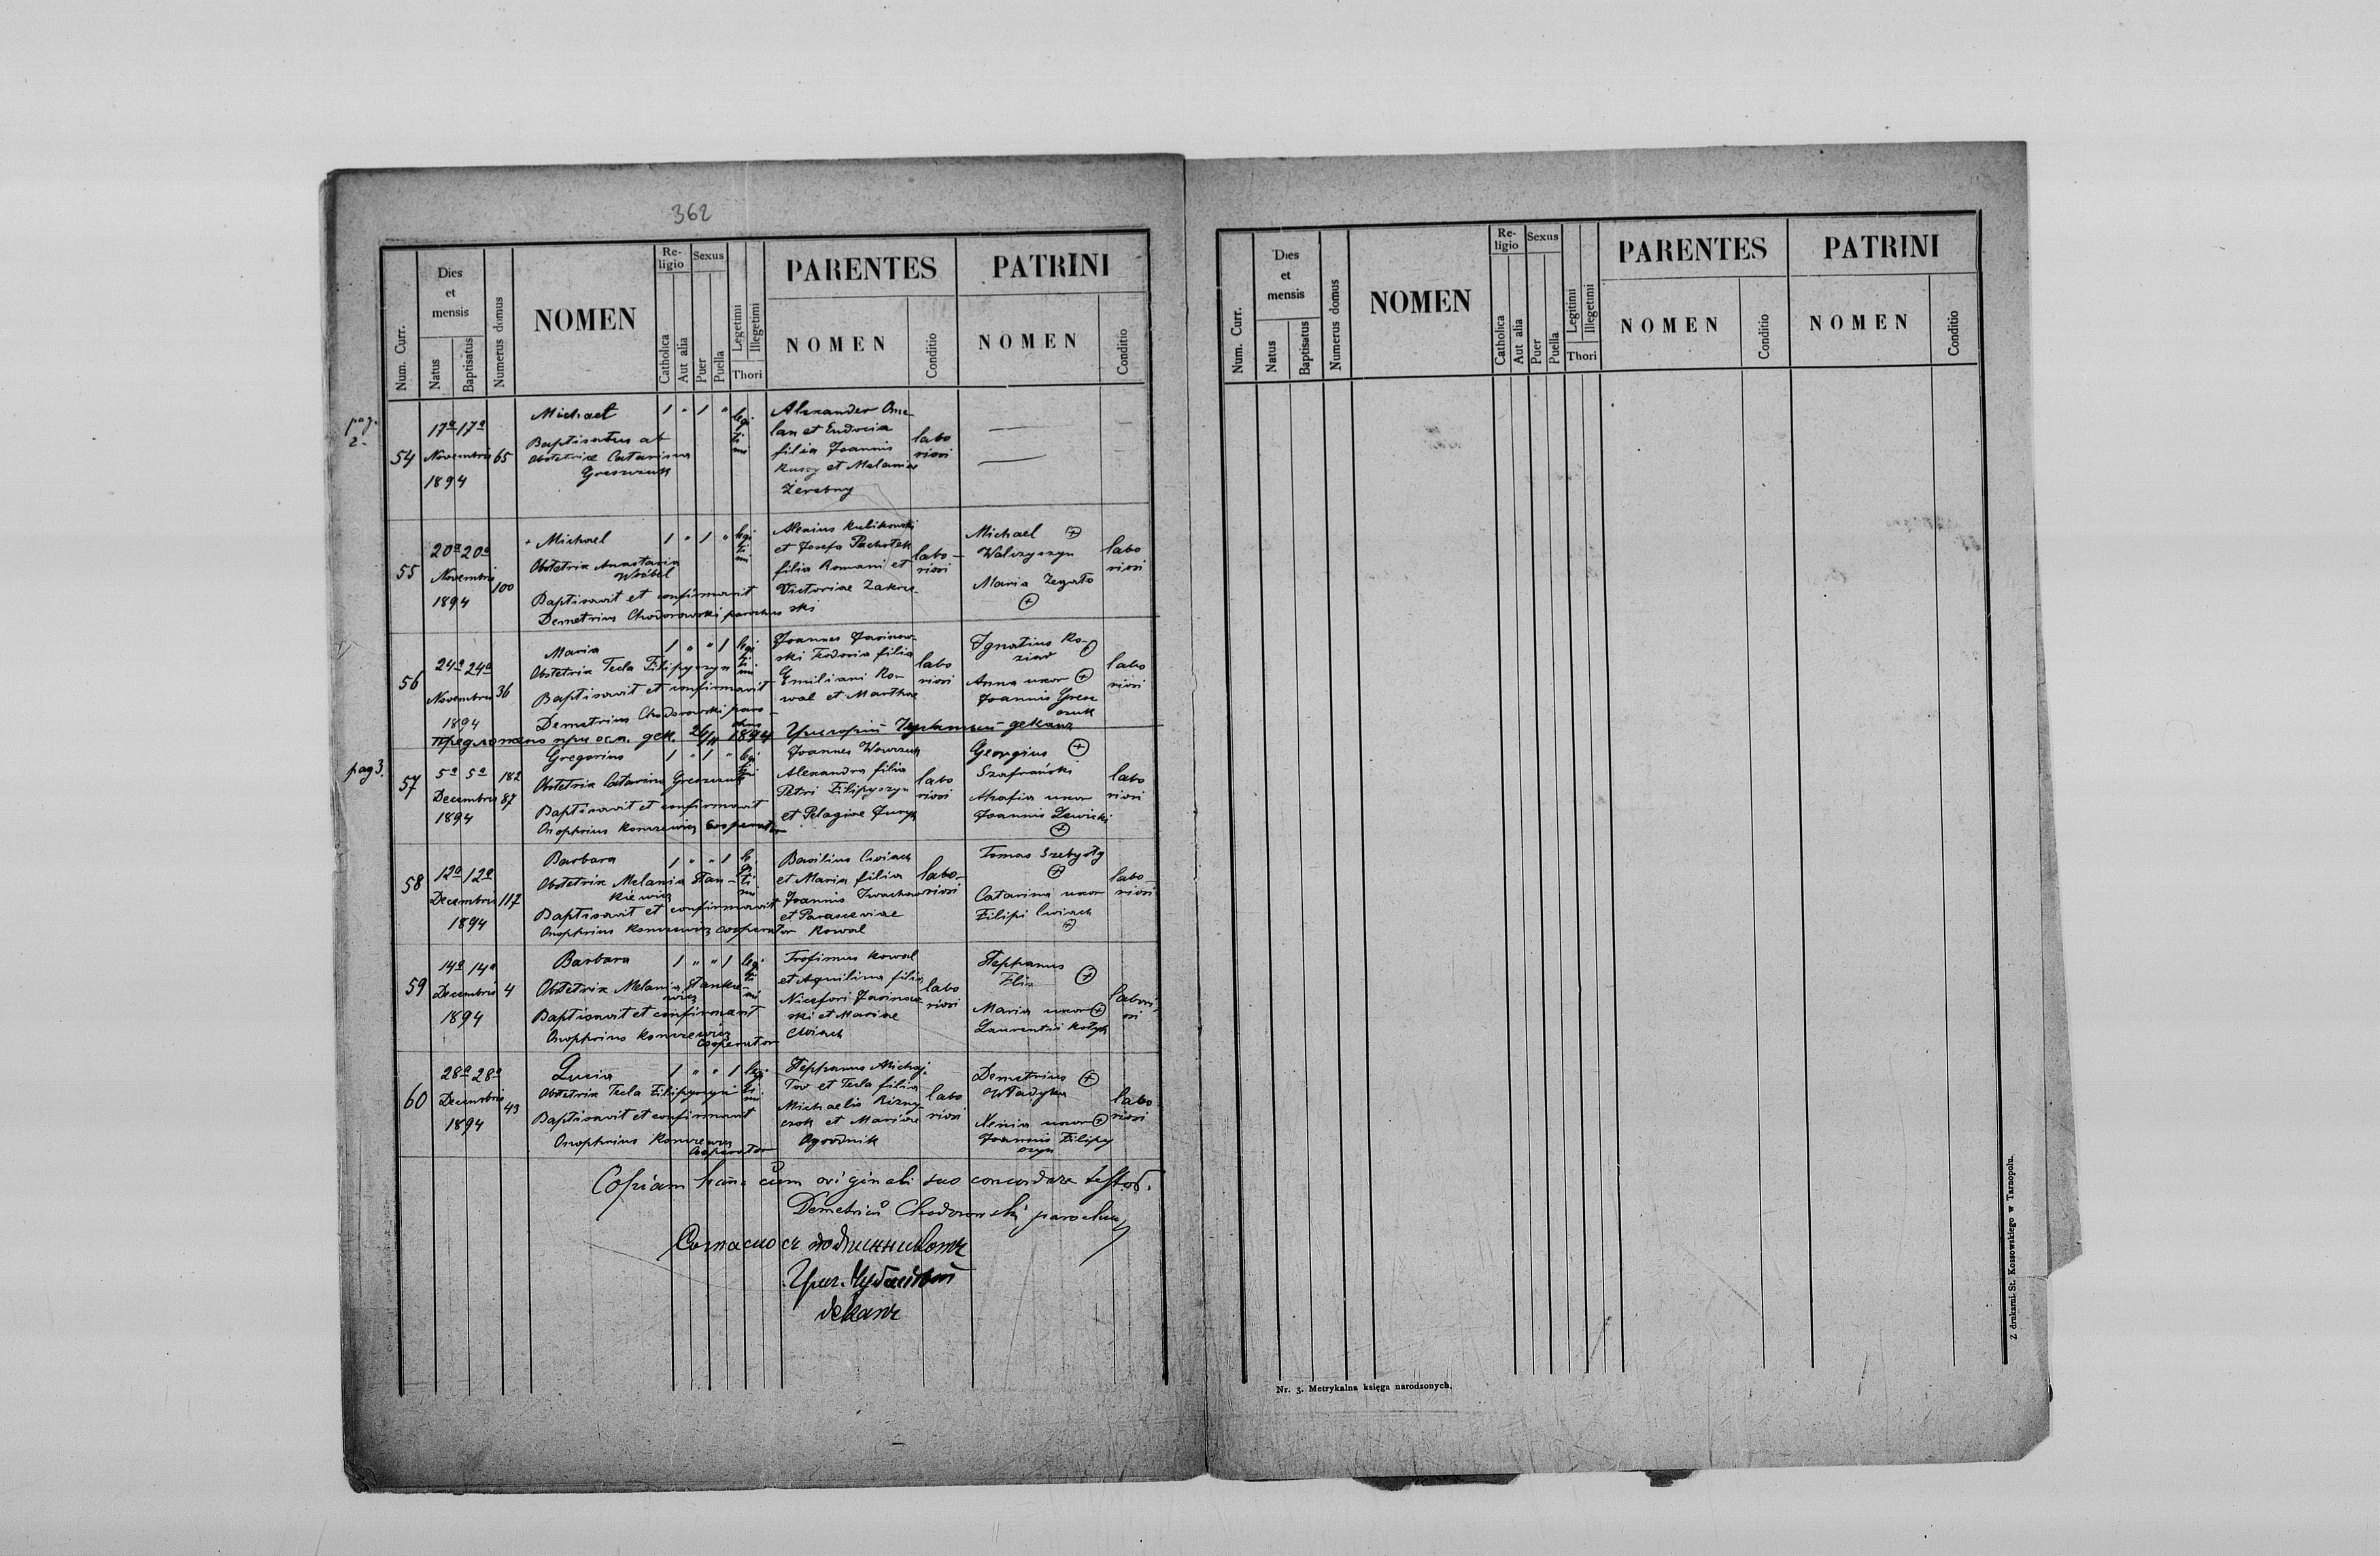 362
Num. Curr.
Dies
et
mensis
Natus
Baptisatus
Numerus domus
NOMEN
Re-
ligio
Catholica
Aut alia
Sexus
Puer
Puella
Legetimi
Illegetimi
Thori
PARENTES
NOMEN
Conditio
PATRINI
NOMEN
Conditio
pag.
2.
54
17ª 17ª
Novembris
1894
65
Michael
Baptisatus ab
obstetrice Catarina
1 " 1 "
legi
ti
mi
Alexander Ome-
lan et Eudocia
filia Joannis
et Melaniae
Żerebny
labo
riosi
55
20ª 20ª
Novembris
1894
100
Michael
Obstetrix Anastasia
Wróbel
Baptisavit et confirmavit
Demetrius Chodorowski parochus
1 " 1 "
legi
ti
mi
Alexius Kulikowski
et Josefa Pachołek
filia Romani et
Victoriae Zakrze-
ski
labo-
riosi
Michael +
Walczyszyn
Maria
+
labo
riosi
56
24ª 24ª
Novembris
1894
36
Maria
Obstetrix Tecla Filipyszyn
Baptisavit et confirmavit
Demetrius Chodorowski paro-
chus
1 " " 1
legi
ti
mi
Joannes Jasinow-
ski Teodosia filia
Emiliani Ko-
wal et Marthae
labo
riosi
Ignatius Ko-
ziar
Anna uxor +
Joannis Gresz
czuk
labo
riosi
Предложено при осл. дек. 26/11 1894 Григорій деканъ
pag 3.
57
5ª 5ª
Decembris
1894
182
87
Gregorius
Obstetrix Catarina
Baptisavit et confirmavit
Onophrius cooperator
1 " 1 "
legi
timi
Joannes
Alexandra filia
Petri Filipyszyn
et Pelagiae
labo
riosi
Georgius +
Szafrański
uxor
Joannis Lewicki
+
labo
riosi
58
12ª 12ª
Decembris
1894
117
Barbara
Obstetrix Melania Stan-
kiewicz
Baptisavit et confirmavit
Onophrius cooperator
1 " " 1
le
gi
ti
mi
Basilius Cwiach
et Maria filia
Joannis
et Parasceviae
Kowal
labo-
riosi
Tomas
+
Catarina uxor
Filipi Cwiach
+
labo-
riosi
59
14ª 14ª
Decembris
1894
4
Barbara
Obstetrix Melania Stankie-
wicz
Baptisavit et confirmavit
Onophrius
cooperator
1 " " 1
legi
ti
mi
Trofimus Kowal
et Aquilina filia
Nicefori Jasinow-
ski et Mariae
Cwiach
labo
riosi
Stephanus
Elis +
Maria uxor +
Laurentii
labori
osi
60
28ª 28ª
Decembris
1894
43
Lucia
Obstetrix Tecla Filipyszyn
Baptisavit et confirmavit
Onophrius
cooperator
1 " " 1
legi
ti
mi
Stephanus Michaj-
łow et Tecla filia
Michaelis Rizny-
czok et Mariae
Ogrodnik
labo
riosi
Demetrius +
Władyka
Xenia uxor +
Joannis Filipy
szyn
labo
riosi
Copiam hanc cum originali suo concordare testor.
Demetrius Chodorowski parochus
Согласно съ подлинникомъ
Григ.
деканъ
Num. Curr.
Dies
et
mensis
Natus
Baptisatus
Numerus domus
NOMEN
Re-
ligio
Catholica
Aut alia
Sexus
Puer
Puella
Legitimi
Illegetimi
Thori
PARENTES
NOMEN
Conditio
PATRINI
NOMEN
Conditio
Nr. 3. Metrykalna księga narodzonych.
Z drukarni St. Kossowskiego w Tarnopolu.